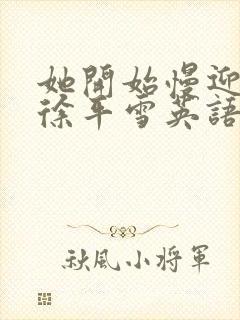 她開始慢迎
徐平雪英語
秋風小將軍